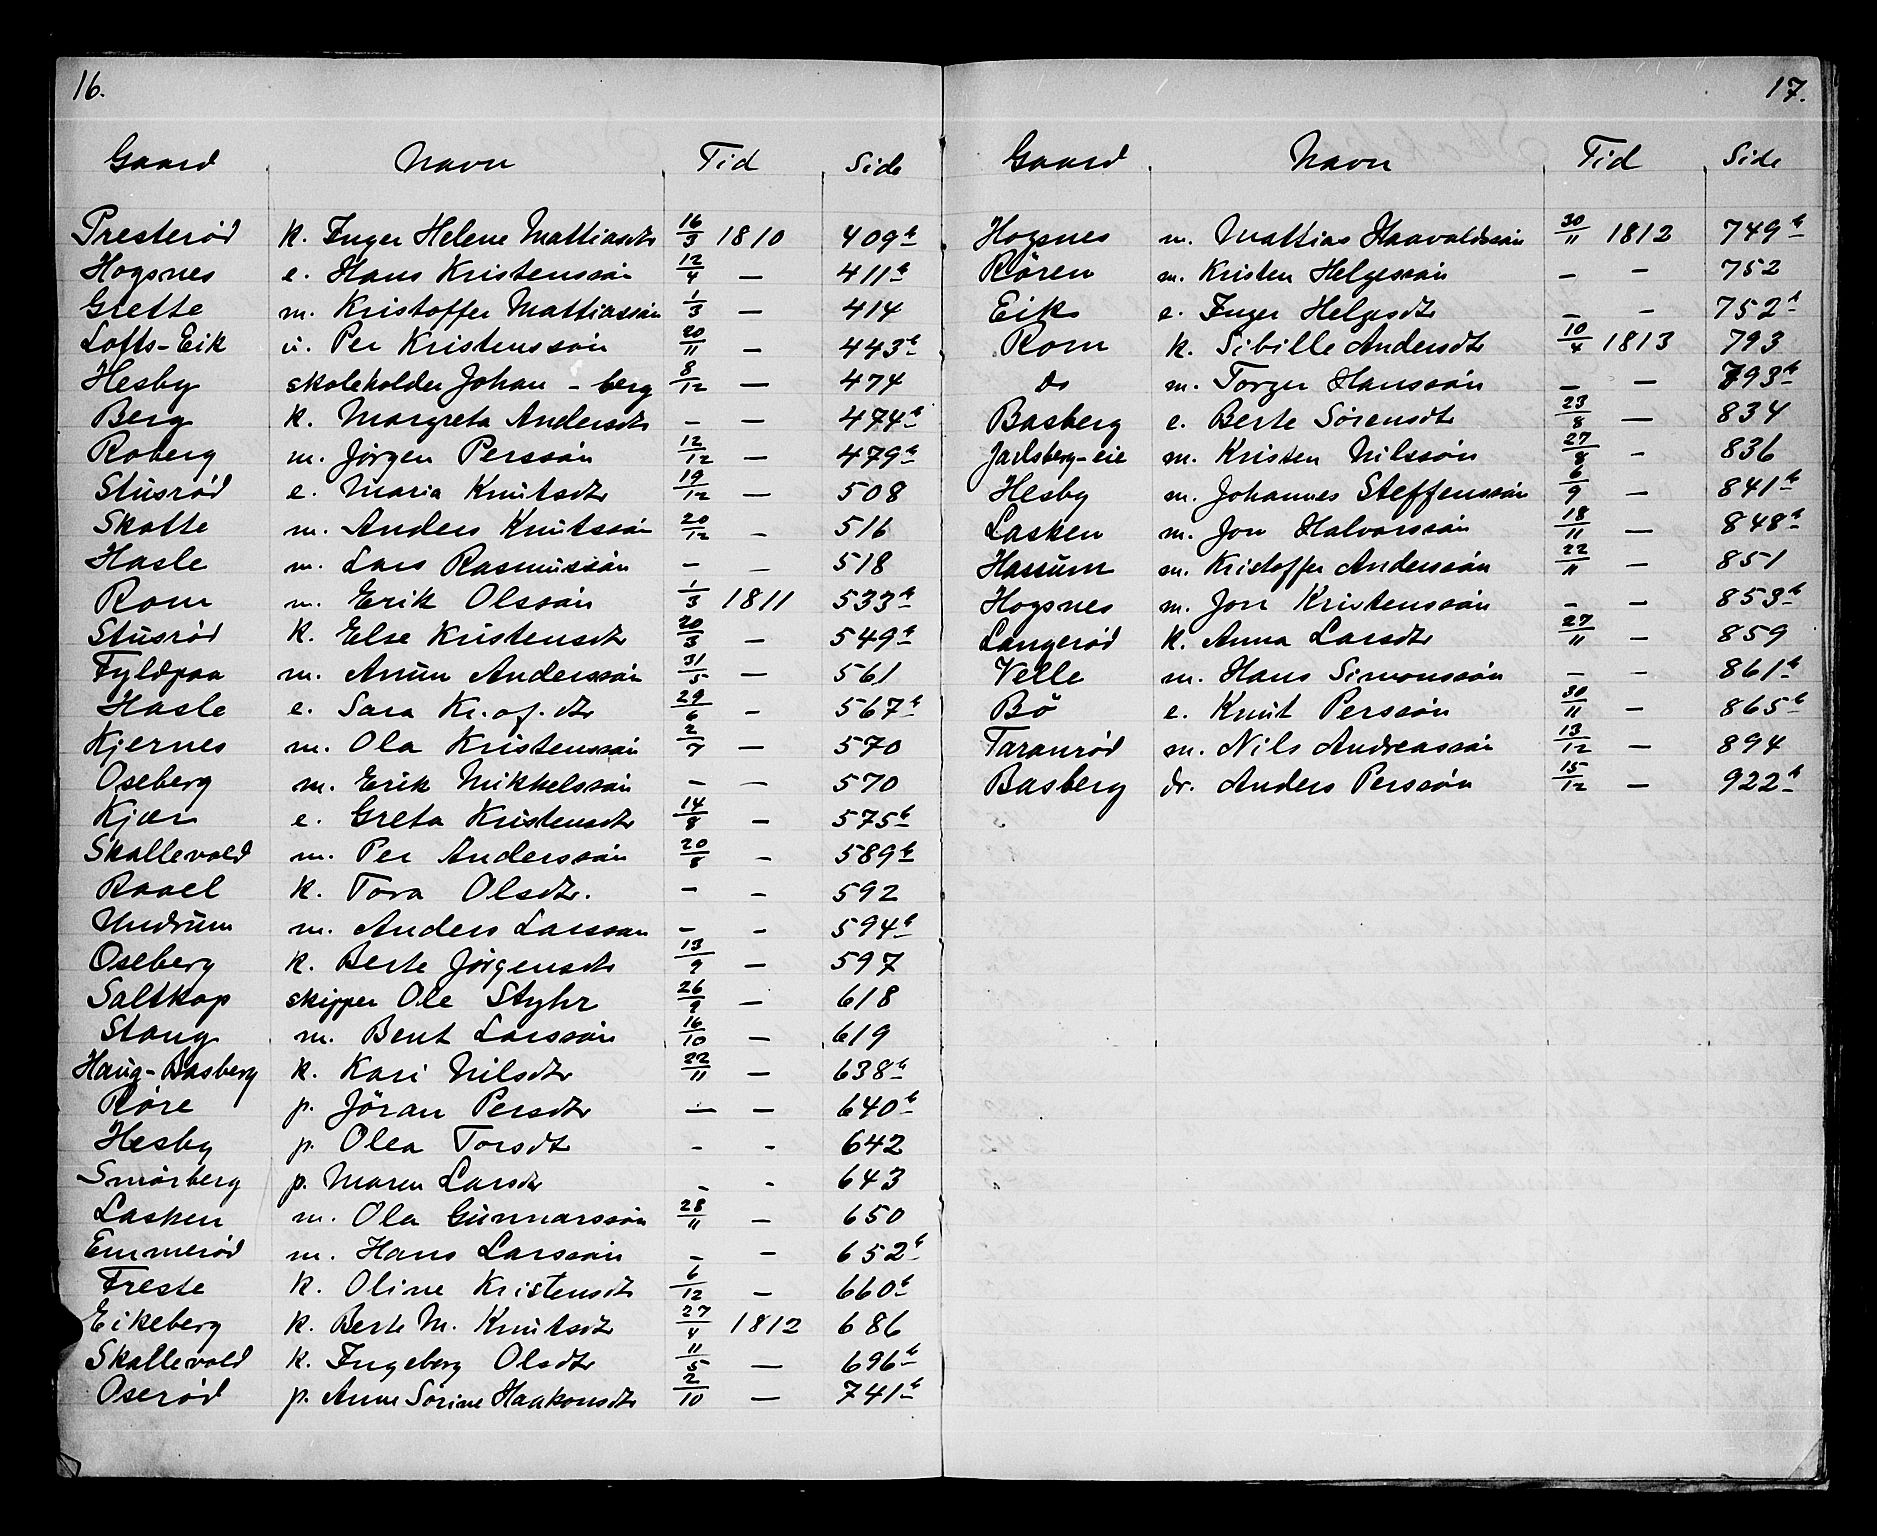 16.
Gaard Navn Tid Side
Presterød k. Inger Helene Mattiasdtr 16/3 1810 409b
Hogsnes e. Hans Kristenssøn 12/4 — 411b
Grette m. Kristoffer Mattiassøn 1/3 — 414
Lofts-Eik u. Per Kristenssøn 20/11 — 443b
Hesby skoleholder Johan - berg 8/12 — 474
Berg k. Margreta Andersdtr — — 474b
Roberg m. Jørgen Perssøn 12/12 — 479b
Stusrød e. Maria Knutsdtr 19/12 — 508
Skotte m. Anders Knutssøn 20/12 — 516
Hasle m. Lars Rasmussøn — — 518
Rom m. Erik Olssøn 1/3 1811 533b
Stusrød k. Else Kristensdtr 20/3 — 549b
Fyldpaa m. Anun Anderssøn 31/5 — 561
Hasle e. Sara Kr.of.dtr 29/6 — 567b
Kjernes m. Ola Kristenssøn 2/7 — 570
Oseberg m. Erik Mikkelssøn — — 570
Kjær e. Greta Kristensdtr 14/8 — 575b
Skallevold m. Per Anderssøn 20/8 — 589b
Raael k. Tora Olsdtr. — — 592
Undrum m. Anders Larssøn — — 594b
Oseberg k. Berte Jørgensdtr 13/9 — 597
Saltkop skipper Ole Styhr 26/9 — 618
Stang m. Bent Larssøn 16/10 — 619
Haug-Basberg k. Kari Nilsdtr 22/11 — 638b
Røre p. Jöran Persdtr — — 640b
Hesby p. Olea Torsdtr — — 642
Smørberg p. Maren Larsdtr — — 643
Lasken m. Ola Gunnarssøn 28/11 — 650
Emmerød m. Hans Larssøn — — 652b
Freste k. Oline Kristensdtr 6/12 — 660b
Eikeberg k. Berte M. Knutsdtr 27/4 1812 686
Skallevold k. Ingeborg Olsdtr 11/5 — 696b
Oserød p. Anne Sorine Haakonsdtr 2/10 — 741b
17.
Gaard Navn Tid Side
Hogsnes m. Mattias Haavaldssøn 30/11 1812 749b
Rören m. Kristen Helgessøn — — 752
Eik e. Inger Helgesdtr — — 752b
Rom k. Sibille Andersdtr 10/4 1813 793
do m. Torger Hanssøn — — 793b
Basberg e. Berte Sørensdtr 23/8 — 834
Jarlsberg-eie m. Kristen Nilssøn 27/8 — 836
Hesby m. Johannes Steffenssøn 6/9 — 841b
Lasken m. Jon Halvorssøn 18/11 — 848b
Hassum m. Kristoffer Anderssøn 22/11 — 851
Hogsnes m. Jon Kristenssøn — — 853b
Langerød k. Anna Larsdtr 27/11 — 859
Velle m. Hans Simonssøn — — 861b
Bö e. Knut Perssøn 30/11 — 865b
Taranrød m. Nils Andreassøn 13/12 — 894
Basberg dr. Anders Perssøn 15/12 — 922b